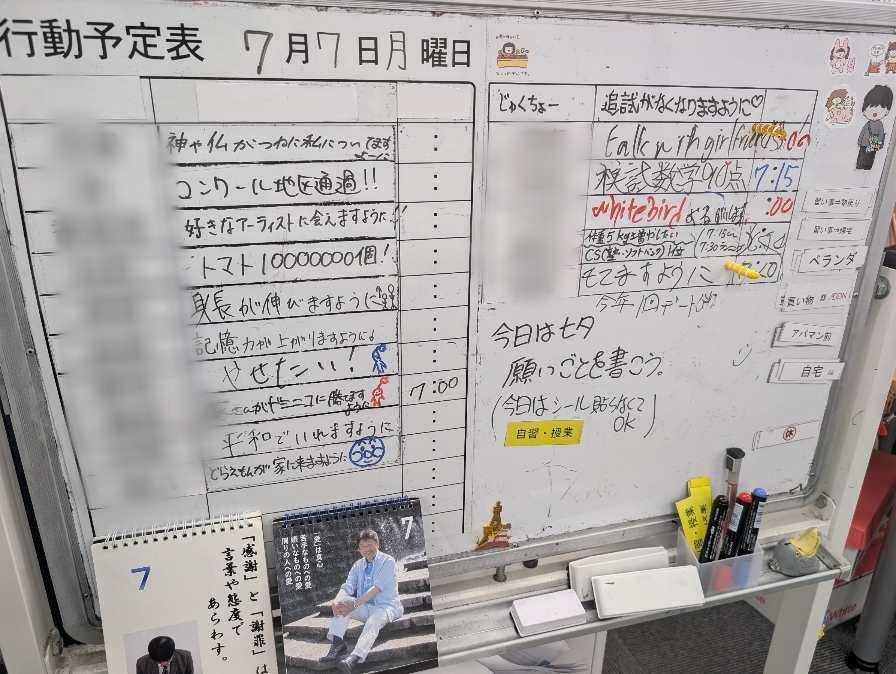 行動予定表 7月7日月曜日
神や仏がつねに私についてますように
コンクール地区通過!!
好きなアーティストに会えますように!!
トマト10000000個!
身長が伸びますように
記憶力が上がりますように
やせたい!
さんがドミニコに勝てますように 7:00
平和でいれますように
どらえもんが家に来ますように
じゅくちょー 追試がなくなりますように♡
talk with girlfriends
模試数学90点 7:15
whitebird :00
体重5kg増やしたい
7:15
7:30
モテますように
今年1回デート
今日は七夕
願いごとを書こう。
(今日はシール貼らなくて
OK)
自習・授業
ベランダ
買い物
アパマン前
自宅
休
7
「感謝」と「謝罪」は
言葉や態度で
あらわす。
7
「愛」は真心
苦手なものへの愛
嫌いなものへの愛
周りの人への愛
White